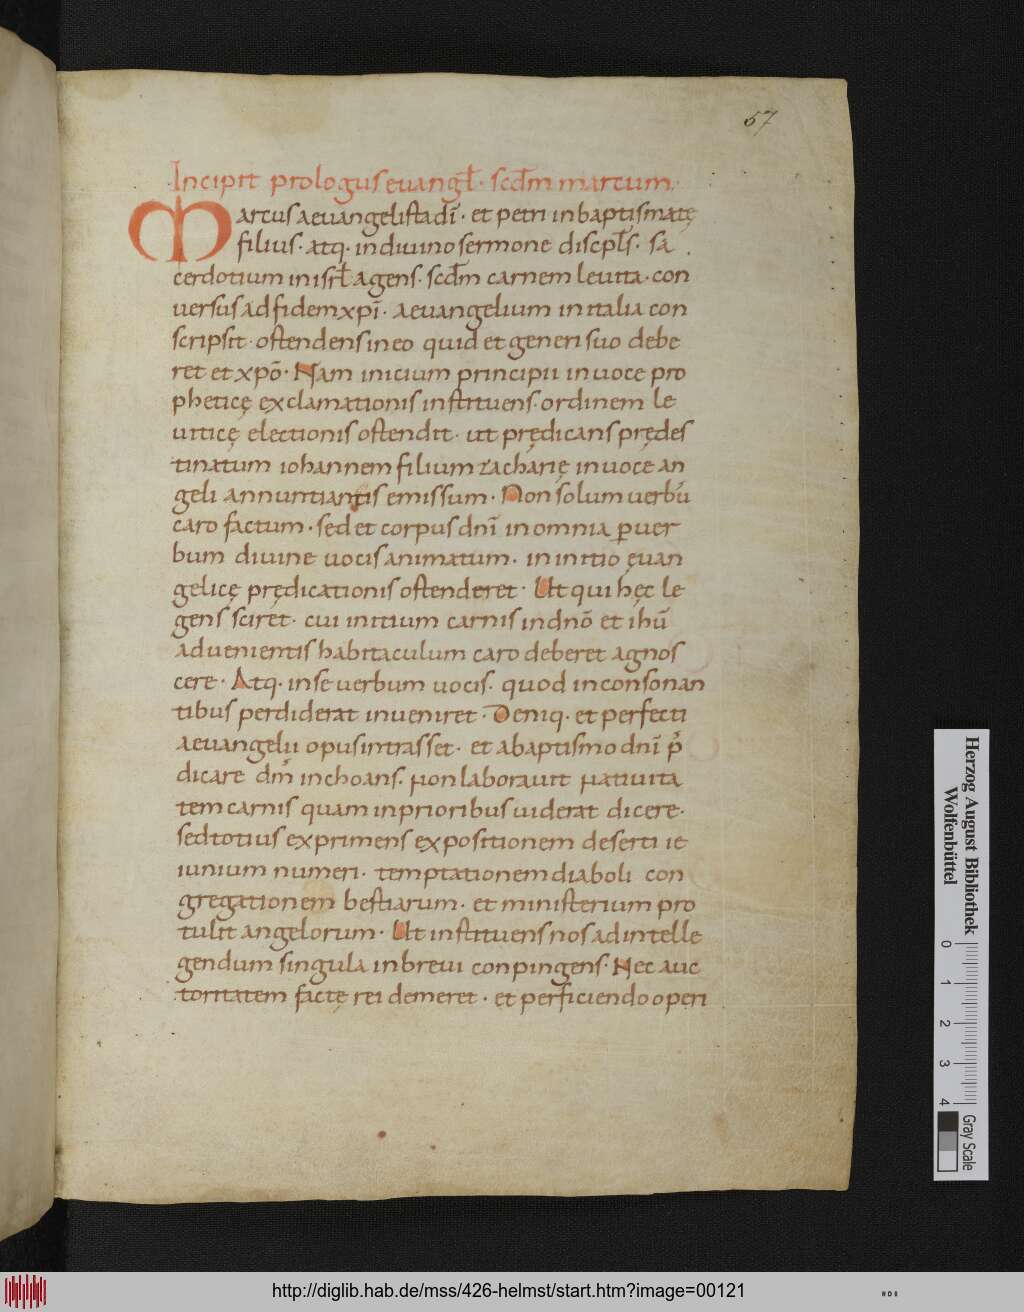 57
Incipit prologus evangl̄· scd̄m marcum·
Marcus aevangelista dī· et petri in baptismate
filius· atq· in divino sermone discpl̄s· sa
cerdotium in isrl̄ agens· scd̄m carnem levita· con
versus ad fidem xpī· aevangelium in italia con
scripsit· ostendens in eo quid et generi suo debe
ret et xpō· Nam inicium principii in voce pro
pheticę exclamationis instituens· ordinem le
viticę electionis ostendit· ut prędicans prędes
tinatum iohannem filium zacharię in voce an
geli annuntiantis emissum· Non solum verbū
caro factum· sed et corpus dnī in omnia ꝑ ver
bum divine vocis animatum· in initio ęvan
gelicę prędicationis ostenderet· Ut qui hęc le
gens sciret· cui initium carnis in dnō et ihū
advenientis habitaculum caro deberet agnos
cere· Atq· in se verbum vocis· quod in consonan
tibus perdiderat inveniret· Deniq· et perfecti
aevangelii opus intrasset· et a baptismo dnī p̄
dicare dm̄ inchoans· non laboravit nativita
tem carnis quam in prioribus viderat dicere·
sed totius exprimens expositionem deserti ie
iunium numeri· temptationem diaboli con
gregationem bestiarum· et ministerium pro
tulit angelorum· Ut instituens nos ad intelle
gendum singula in brevi conpingens· Nec auc
toritatem factę rei demeret· et perficiendo operi
Herzog August Bibliothek
Wolfenbüttel
0 1 2 3 4
Gray Scale
http://diglib.hab.de/mss/426-helmst/start.htm?image=00121